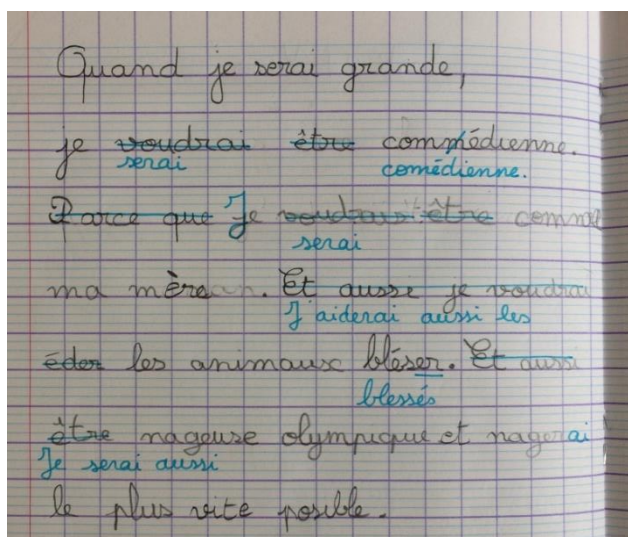 Quand je serai grande,
je voudrai être commédienne.
serai comédienne.
Parce que Je voudrais être comme
serai
ma mère. Et aussi je voudrai
J'aiderai aussi les
éder les animaux bléser. Et aussi
blessés
être nageuse olympique et nagerai
Je serai aussi
le plus vite posible.